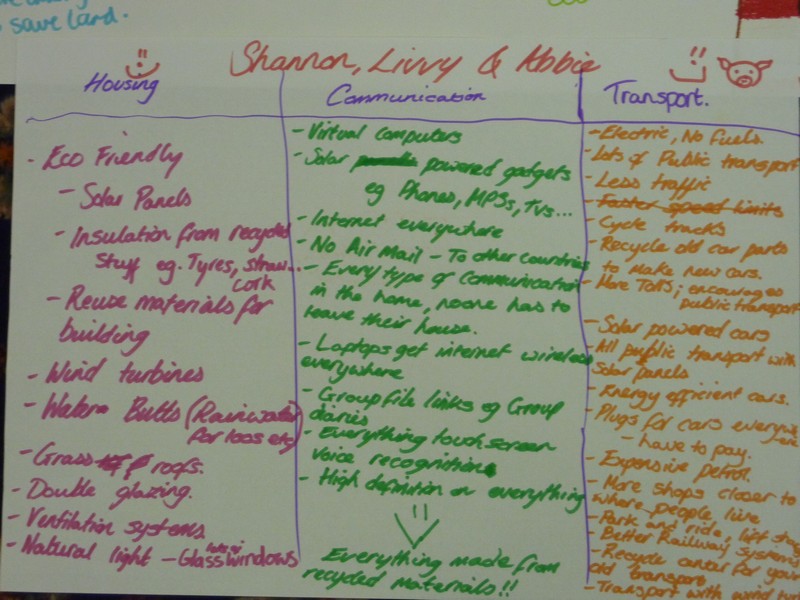 save land.
Shannon, Livvy & Abbie
Housing
- Eco Friendly
- Solar Panels
- Insulation from recycled
stuff eg. Tyres, straw...
cork
- Reuse materials for
building
- Wind turbines
- Water Butts (Rainwater
for loos etc)
- Grass roofs.
- Double glazing.
- Ventilation systems
- Natural light - Glass windows
lots of
Communication
- Virtual computers
- Solar powered gadgets
eg Phones, MPSs, TVs...
- Internet everywhere
- No Air Mail - To other countries
- Every type of communication
in the home, noone has to
leave their house.
- Laptops get internet wireless
everywhere
- Group file links eg Group
diaries
- Everything touch screen
voice recognition
- High definition on everything
Everything made from
recycled materials!!
Transport.
- Electric, No fuels.
- Lots of Public transport
- Less traffic
- Faster speed limits
- Cycle tracks
- Recycle old car parts
to make new cars.
- More Tolls; encourages
public transport
- Solar powered cars
- All public transport with
solar panels
- Energy efficient cars.
- Plugs for cars everywhere
- have to pay.
- Expensive petrol.
- More shops closer to
where people live
- Park and ride, lift
- Better Railway systems
- Recycle center for your
old transport
- Transport with wind